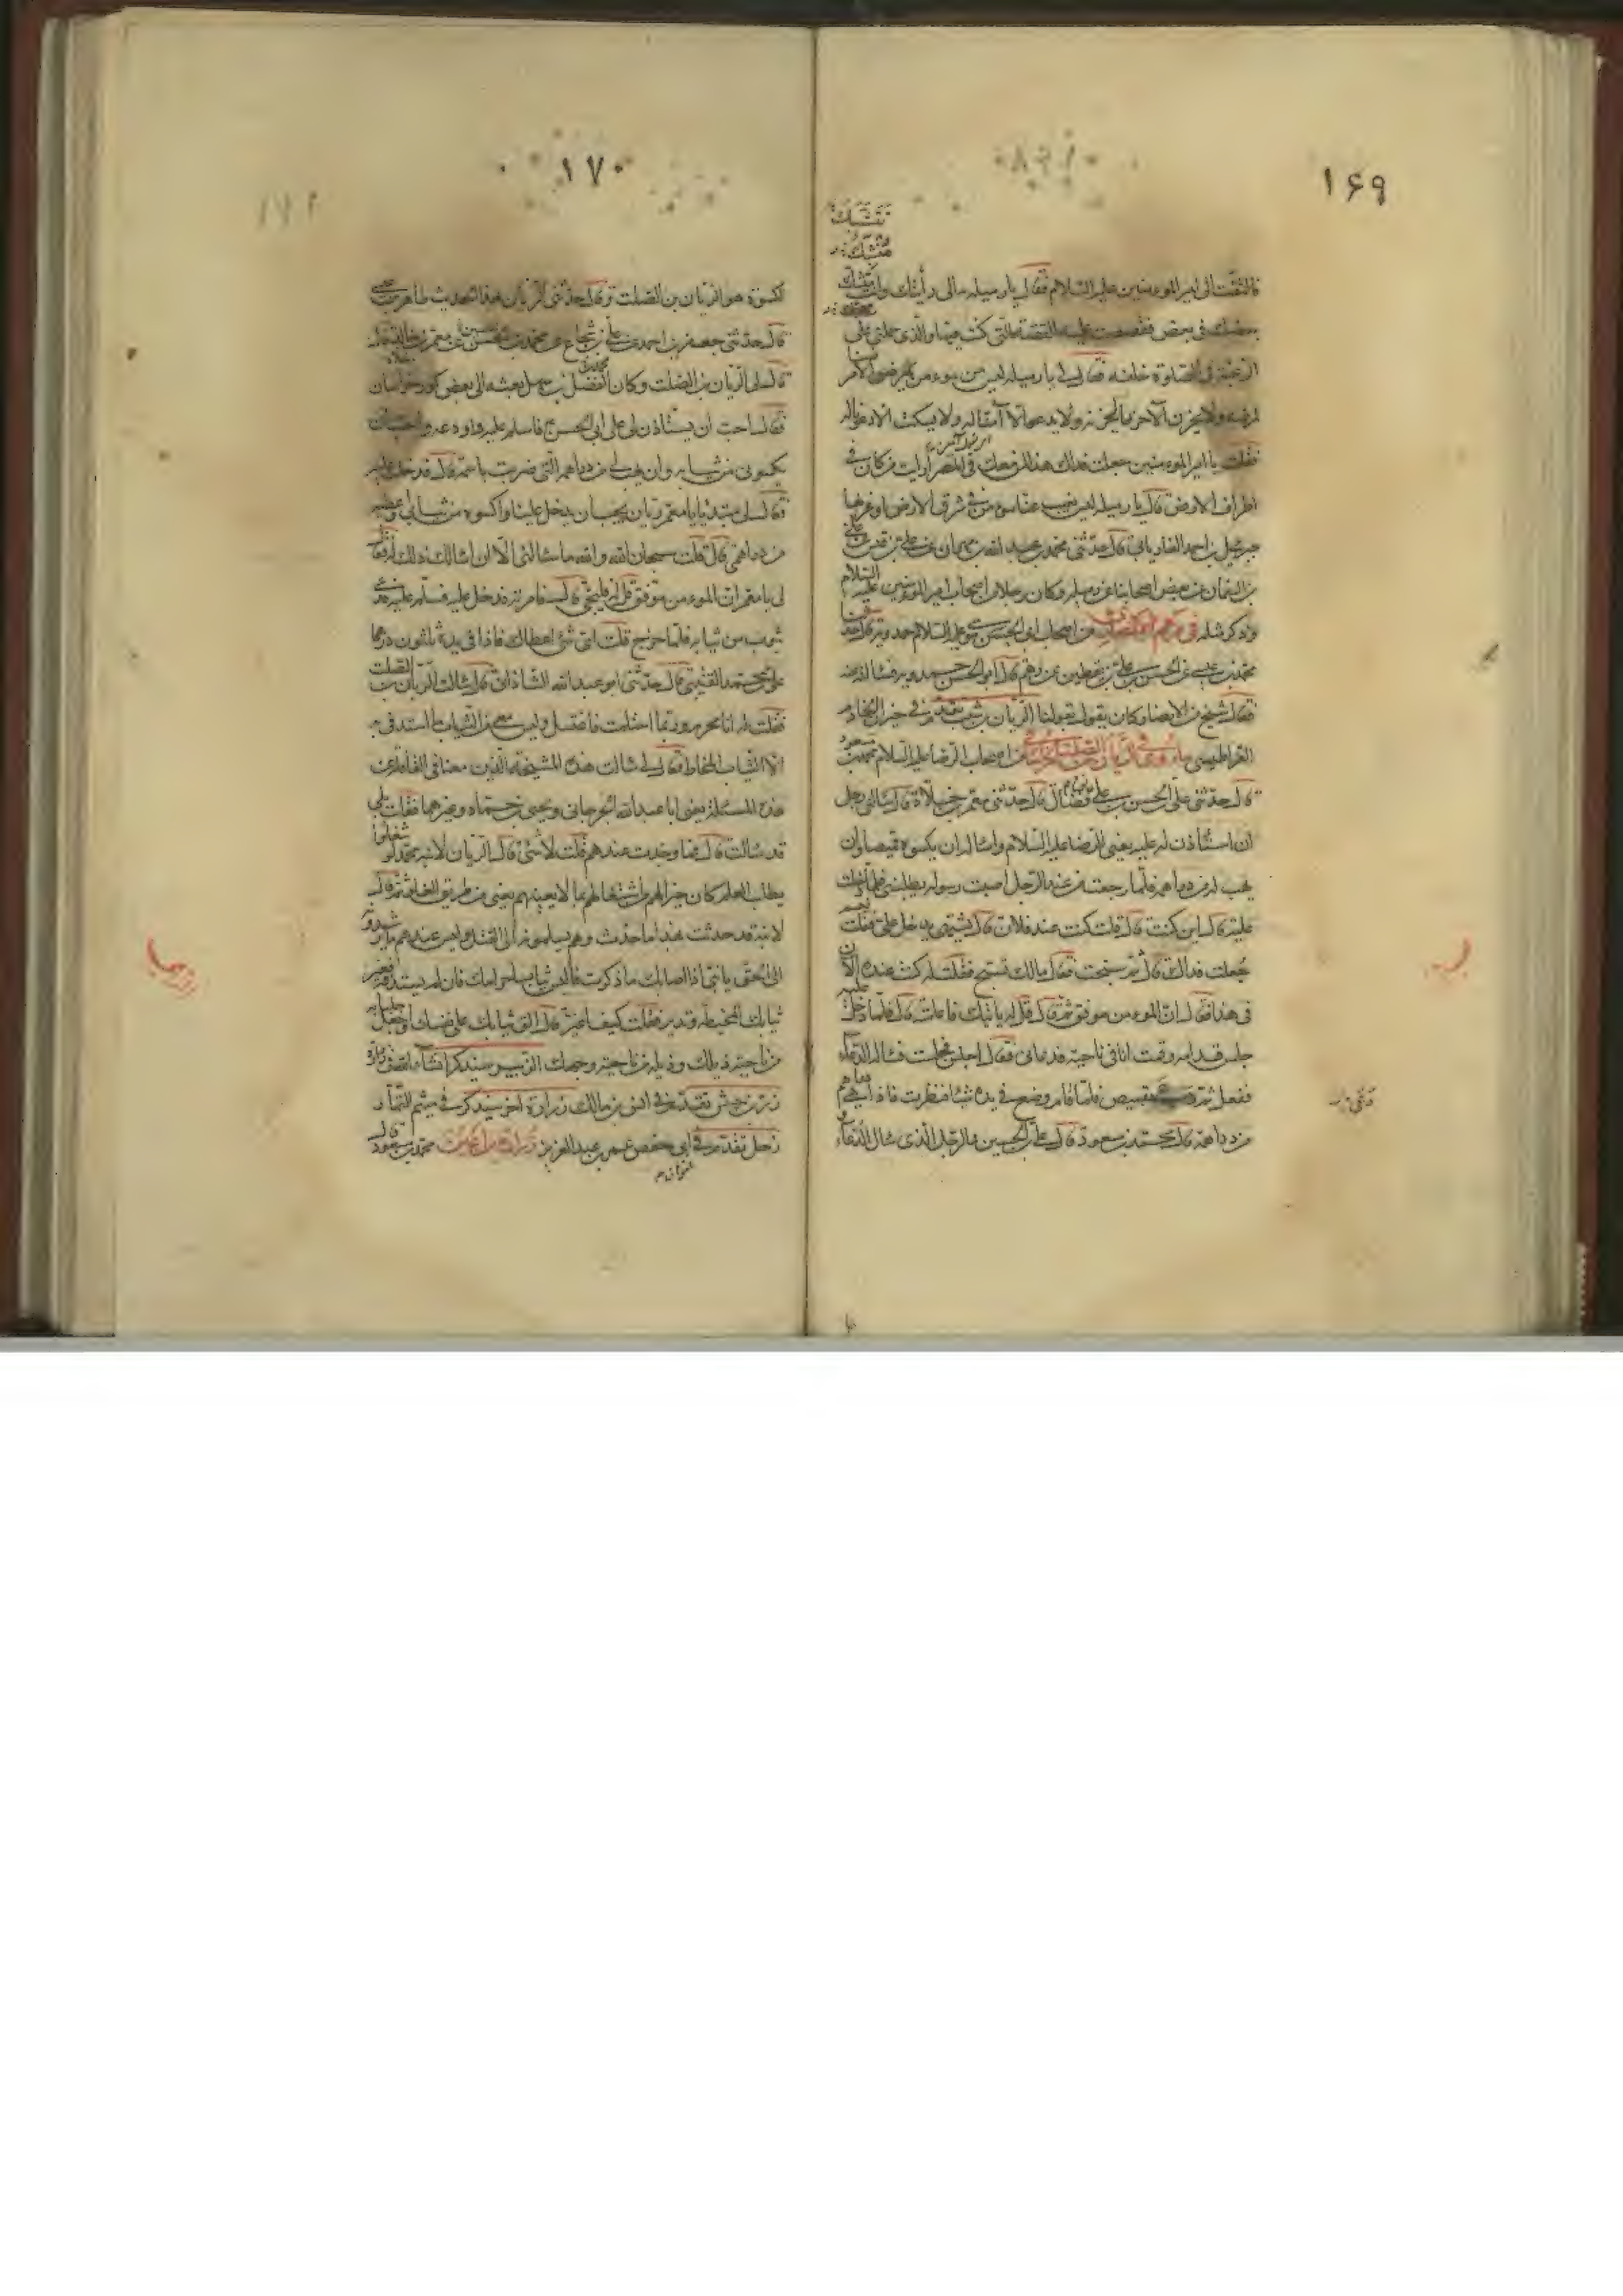 ۱۶۹
فالتفت الى امير المومنين عليه السلام فقال يا رميله مالى رأيتك وانت يتشبك
بعضك فى بعض فقصصت عليه القصة التى كنت فيها والذى حملنى على
الرغبة فى الصلوة خلفه فقال لى يا رميله ليس من مومن يمرض الا مرضنا
لمرضه ولا يحزن الا حزنا لحزنه ولا يدعو الا آمنا له ولا يسكت الا دعونا له
فقلت يا امير المومنين جعلت فداك هذا لمن معك فى المصر ارايت من كان فى
اطراف الارض قال يا رميله ليس يغيب عنا مومن فى شرق الارض ولا غربها
جبرئيل بن احمد الفاريابى قال حدثنى محمد بن عبد الله بن مهران عن على بن قيس عن على
بن النعمان عن بعض اصحابنا عن رميله وكان رجلا من اصحاب امير المومنين عليه السلام
وذكر مثله فى رهم من اصحاب ابى الحسن موسى عليه السلام حمدويه قال حدثنا
محمد بن عيسى عن الحسن بن على بن يقطين عن رهم قال ابو الحسن حمدويه فسألته عنه
فقال شيخ من الانصار وكان يقول بقولنا الريان بن شبيب تقدم فى خبر الخادم
القراطيسى ما روى فى الريان بن الصلت الخراسانى من اصحاب الرضا عليه السلام محمد بن مسعود
قال حدثنى على بن الحسن بن على بن فضال قال حدثنى معمر بن خلاد قال سألنى رجل
ان استأذن له عليه يعنى الرضا عليه السلام واسأله ان يكسوه قميصا وان
يهب له من دراهمه فلما رجعت من عند الرجل اصبت رسوله يطلبنى فلما دخلت
عليه قال اين كنت قال قلت كنت عند فلان قال يشتهى يدخل على فقلت نعم
جعلت فداك قال ثم سبحت فقال مالك تسبح فقلت له كنت عنده الان
فى هذا فقال ان المومن موفق ثم قال قل له ياتيك فاعلمته قال فلما دخل عليه
جلس قدامه وقمت انا فى ناحية فدعانى فقال اجلس فجلست فسأله الدعاء
ففعل ثم دعا بقميص فلما قام وضع فى يده شيئا فنظرت فاذا هى دراهم
من دراهمه قال محمد بن مسعود قال على بن الحسين والرجل الذى سأل الدعاء و
۱۷۰
الكسوة هو الريان بن الصلت وقال حدثنى الريان بهذا الحديث طاهر بن عيسى
قال حدثنى جعفر بن احمد عن على بن شجاع عن محمد بن الحسن عن معمر بن خلاد قال
قال لى الريان بن الصلت وكان الفضل بن سهل بعثه الى بعض كور خراسان
فقال احب ان تستاذن لى على ابى الحسن ع فاسلم عليه واودعه واحب ان
يكسونى من ثيابه وان يهب لى من دراهمه التى ضربت باسمه قال فدخلت عليه
فقال لى مبتديا يا معمر ريان يحب ان يدخل علينا واكسوه من ثيابى واعطيه
من دراهمى قال قلت سبحان الله والله ما سألنى الا ان اسالك ذلك له فقال
لى يا معمر ان المومن موفق قل له فليجئ قال فامرته فدخل عليه فسلم عليه فدعى
بثوب من ثيابه فلما خرج قلت اى شئ اعطاك فاذا فى يده ثلثون درهما
على بن محمد القتيبى قال حدثنى ابو عبد الله الشاذانى قال سالت الريان بن الصلت
فقلت له انا محرم وربما احتلمت فاغتسل وليس معى من الثياب ما استدفى به
الا الثياب المخاطة فقال لى سالت هذه المشيخة الذين معنا فى القافلة عن
هذه المسئلة يعنى ابا عبد الله الجرجانى ويحيى بن حماد وغيرهما فقلت بلى
قد سالت قال فما وجدت عندهم قلت لا شئ قال الريان لابنه محمد لو شغلوا
بطلب العلم كان خيرا لهم واشتغالهم بما لا يعنيهم يعنى من طريق الغلو ثم قال
لابنه قد حدث بهذا ما حدث وهم يسلمونه الى القتل وليس عندهم ما يرشدونه
الى الحق يا بنى اذا اصابك ما ذكرت فالبس ثياب احرامك فان لم تستدف فغير
ثيابك المخيطة وتدبر فقلت كيف اغير قال الق ثيابك على نفسك واجعل جلبابه
من ناحية ذيلك وذيله من ناحية وجهك الزبير سيذكر انشاء الله
زر بن حبيش تقدم فى انس بن مالك زرارة اخر سيذكر فى ميثم التمار
زحل تقدم فى ابى حفص عمر بن عبد العزيز زرارة بن اعين محمد بن مسعود قال